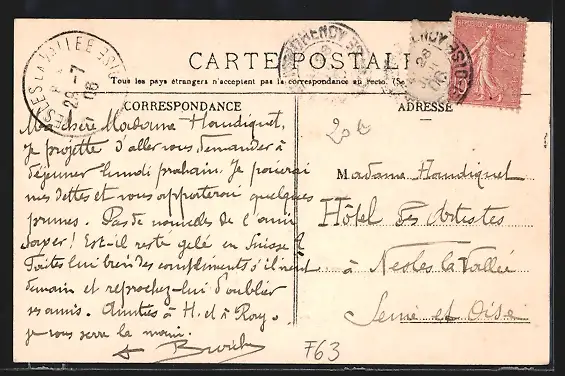 CARTE POSTALE
Tous les pays étrangers n'acceptent pas la correspondance au recto. (Se
CORRESPONDANCE
ADRESSE
Ma chère Madame Haudiquet,
Je projette d'aller vous demander à
déjeuner lundi prochain. Je paierai
mes dettes et vous apporterai quelques
prunes. Pas de nouvelles de l'ami
! Est-il resté gelé en Suisse ?
Faites lui bien des compliments s'il vient
demain et reprochez-lui d'oublier
ses amis. Amitiés à H. et à Roy.
Je vous serre la main.
20 €
Madame Haudiquet
Hôtel des Artistes
à Nesles la Vallée
Seine et Oise
F63
NESLES LA VALLÉE
29 -7
06